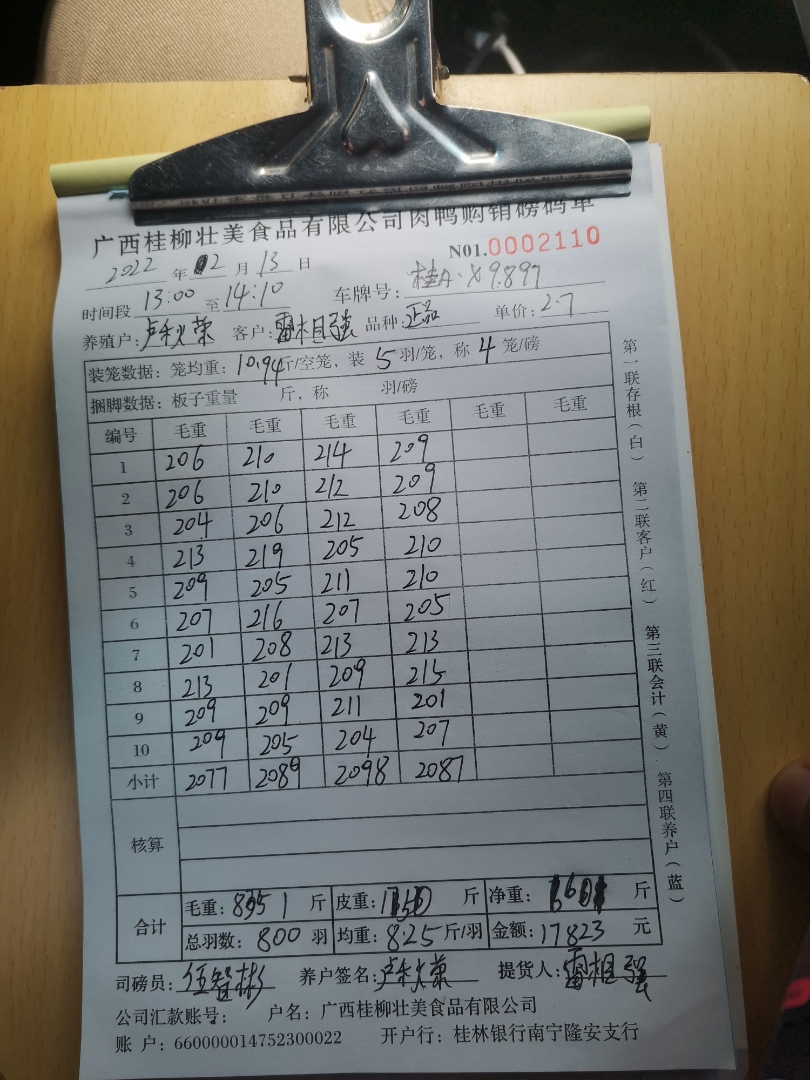 广西桂柳壮美食品有限公司肉鸭购销磅码单
N01.0002110
2022 年 02 月 13 日
时间段 13:00 至 14:10 车牌号: 桂A·X9897
养殖户: 卢秋荣 客户: 雷相强 品种: 正品 单价: 2.7
装笼数据: 笼均重: 10.94 斤/空笼, 装 5 羽/笼, 称 4 笼/磅
捆脚数据: 板子重量 斤, 称 羽/磅
编号 毛重 毛重 毛重 毛重 毛重 毛重
1 206 210 214 209
2 206 210 212 209
3 204 206 212 208
4 213 219 205 210
5 209 205 211 210
6 207 216 207 205
7 201 208 213 213
8 213 201 209 215
9 209 209 211 201
10 209 205 204 207
小计 2077 2089 2098 2087
核算
合计
毛重: 8351 斤 皮重: 斤 净重: 斤
总羽数: 800 羽 均重: 8.25 斤/羽 金额: 17823 元
司磅员: 伍智彬 养户签名: 卢秋荣 提货人: 雷相强
公司汇款账号: 户名: 广西桂柳壮美食品有限公司
账 户: 660000014752300022 开户行: 桂林银行南宁隆安支行
第一联存根(白) 第二联客户(红) 第三联会计(黄) 第四联养户(蓝)